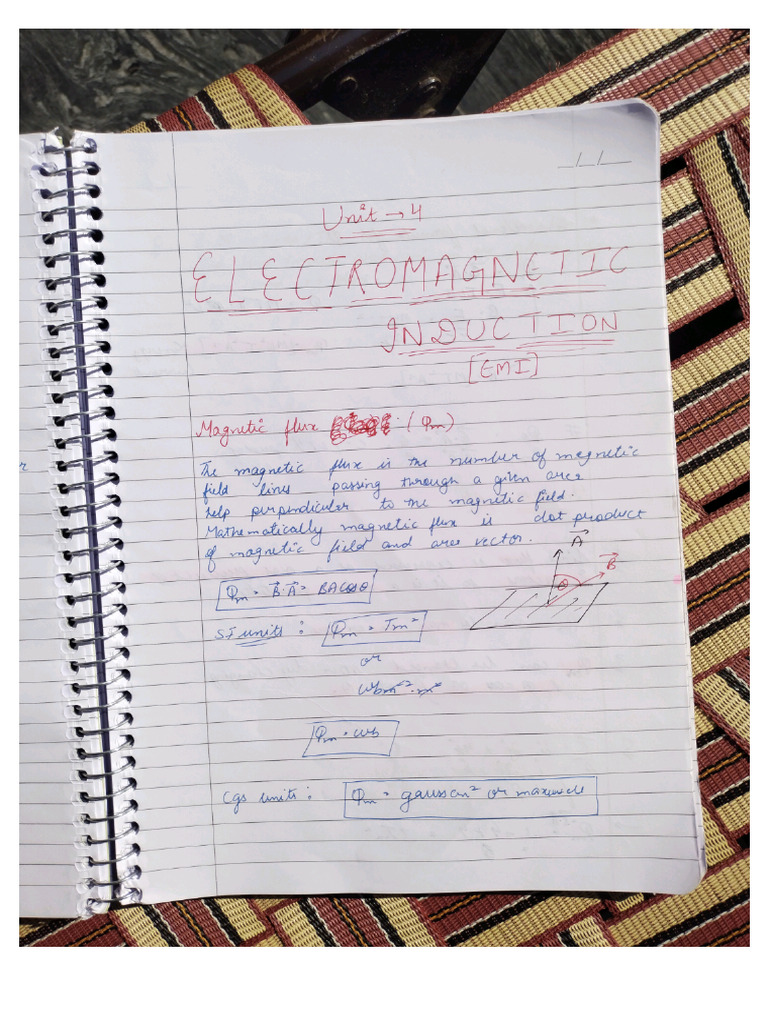 _/_/_
Unit → 4
ELECTROMAGNETIC
INDUCTION
[EMI]
Magnetic flux (φm)
The magnetic flux is the number of megnetic
field lines passing through a given area
help perpendicular to the magnetic field.
Mathematically magnetic flux is dot product
of magnetic field and area vector.
A⃗
B⃗
θ
φm = B⃗.A⃗ = BA cosθ
SI units : φm = Tm²
or
wbm⁻².m²
φm = wb
Cgs units : φm = gausscm² or maxwele
r